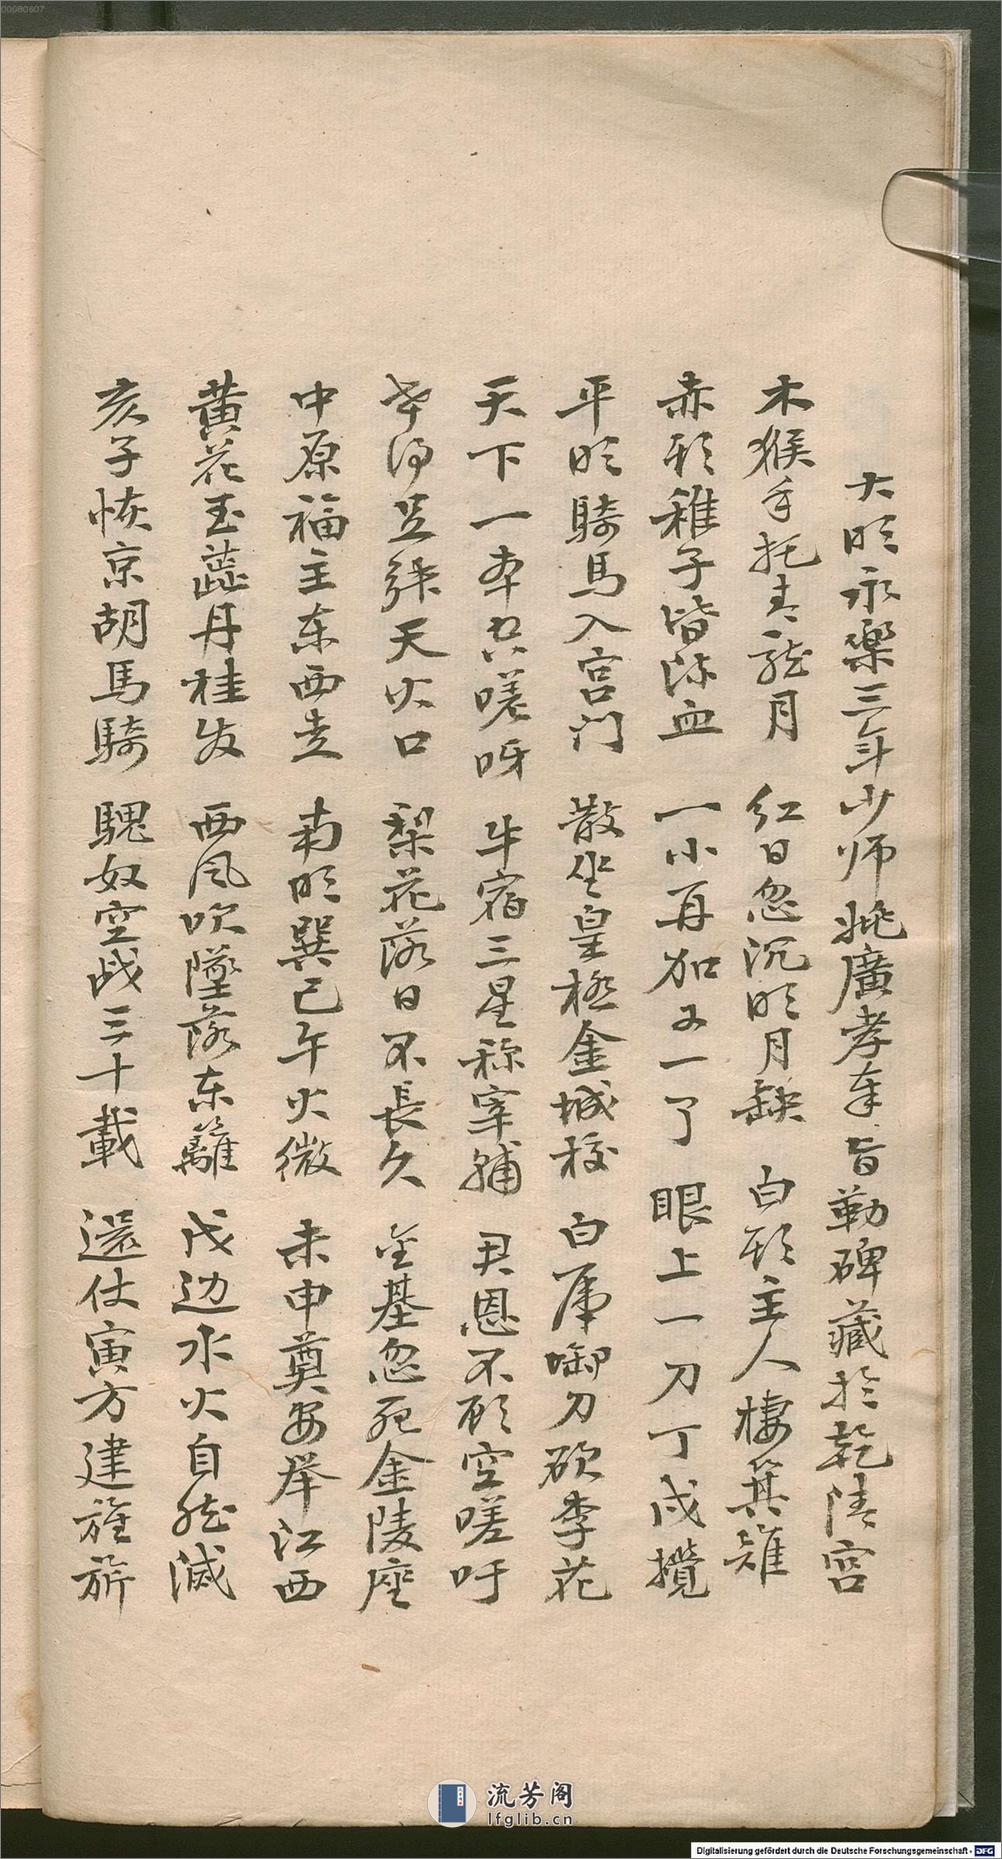 00080607
大明永樂三年少师姚廣孝奉旨勒碑藏於乾清宫
木猴手托青龙月 红日忽沉明月缺 白頭主人棲箕雉
赤頭稚子皆流血 一小再加又一了 眼上一刀丁戊攪
平明騎馬入宫门 散坐皇極金城校 白虎啣刀砍李花
天下一本共嗟呀 牛宿三星称宰輔 君恩不顾空嗟吁
天火口 梨花落日不長久 金基忽死金陵座
中原福主东西走 南明巽已午火微 未申奠安举江西
黄花玉蕋丹桂发 西风吹墜落东籬 戊边水火自然滅
亥子恢京胡馬騎 騩奴空战三十載 還仗寅方建旌旂
流芳阁
lfglib.cn
Digitalisierung gefördert durch die Deutsche Forschungsgemeinschaft - DFG